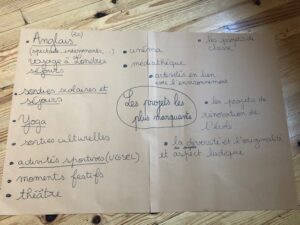 Anglais (x2)
(spectacle, intervenants, ...)
voyage à Londres
séjours
sorties scolaires et
séjours
Yoga
sorties culturelles
activités sportives (UGSEL)
moments festifs
théâtre
cinéma
médiathèque
activités en lien
avec l'environnement
Les projets les
plus marquants
les projets de
classe
les projets de
rénovation de
l'école
la diversité et l'originalité
et aspect ludique